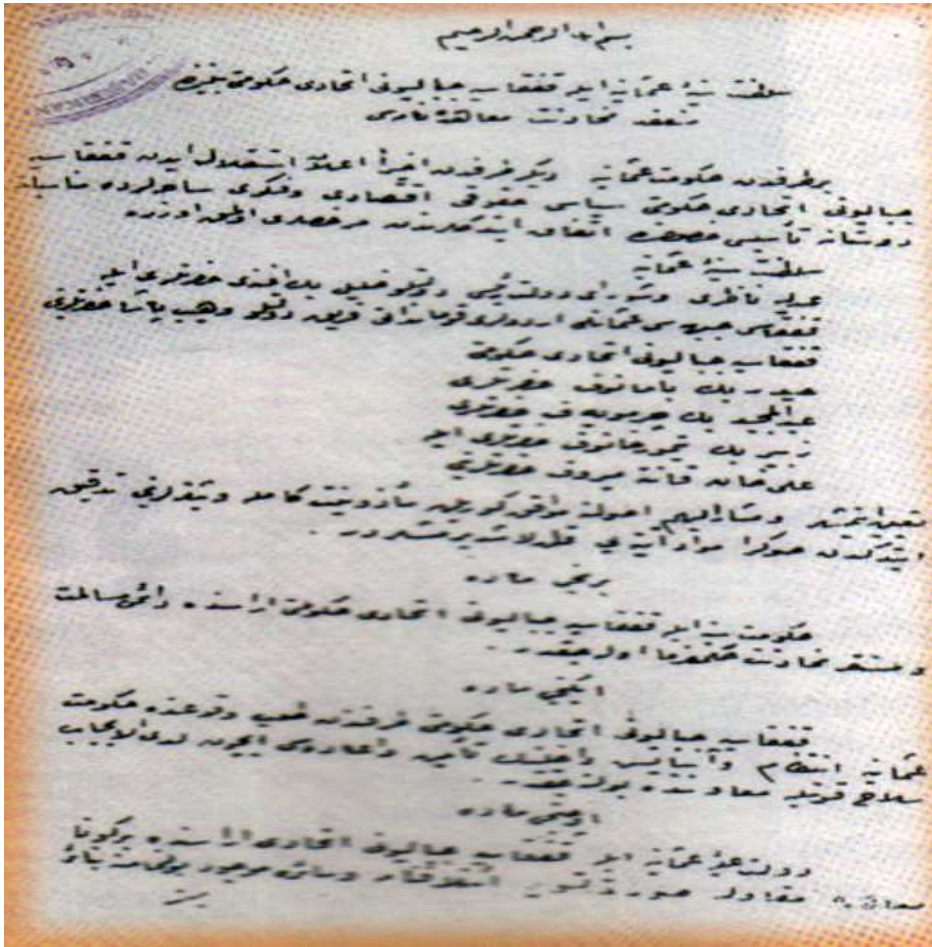 بسم الله الرحمن الرحيم
سلطنت سنيۀ عثمانيه ايله قفقاسيه جباليونى اتحادى حكومتى بيننده
منعقد مخادنت معاهده نامه سى
برطرفدن حكومت عثمانيه ديكر طرفدن اخيراً اعلان استقلال ايدن قفقاسيه
جباليونى اتحادى حكومتى سياسى حقوقى اقتصادى وفكرى ساحه لرده مناسبات
دوستانه تأسيسى خصوصنده اتفاق ايتدكلرندن مرخصلرى اولمق اوزره
سلطنت سنيۀ عثمانيه
عدليه ناظرى وشوراى دولت رئيسى دولتلو خليل بك افندى حضرتلرى ايله
قفقاس جبهه سى عثمانلى اردولرى قوماندانى فريق دولتلو وهيب پاشا حضرتلرينى
قفقاسيه جباليونى اتحادى حكومتى
حيدر بك بامانوف حضرتلرى
عبدالمجيد بك چرمويه ف حضرتلرى
زبير بك تمورخانوف حضرتلرى ايله
على خان قانته ميروف حضرتلرينى
تعيين ايتمشلر ومشاراليهم اصولنه موافق كوريلن مأذونيت كامله وثيقه لرينى تدقيق
ايتدكدن صوكرا مواد آتيه يى قرارلاشديرمشلردر .
برنجى ماده
حكومت سنيه ايله قفقاسيه جباليونى اتحادى حكومتى اراسنده دائمى مسالمت
ومستقر مخادنت حكمفرما اوله جقدر .
ايكنجى ماده
قفقاسيه جباليونى اتحادى حكومتى طرفندن طلب وقوعنده حكومت
عثمانيه انتظام وآسايش داخلينك تأمين واعاده سى ايچون لدى الايجاب
سلاح قوتيله معاونتده بولنه جقدر .
اوچنجى ماده
دولت عليۀ عثمانيه ايله قفقاسيه جباليونى اتحادى اراسنده بركونا
معاهده مقاوله صورت تسويه ائتلافنامه وسائره موجود بولنمامسنه بناءً